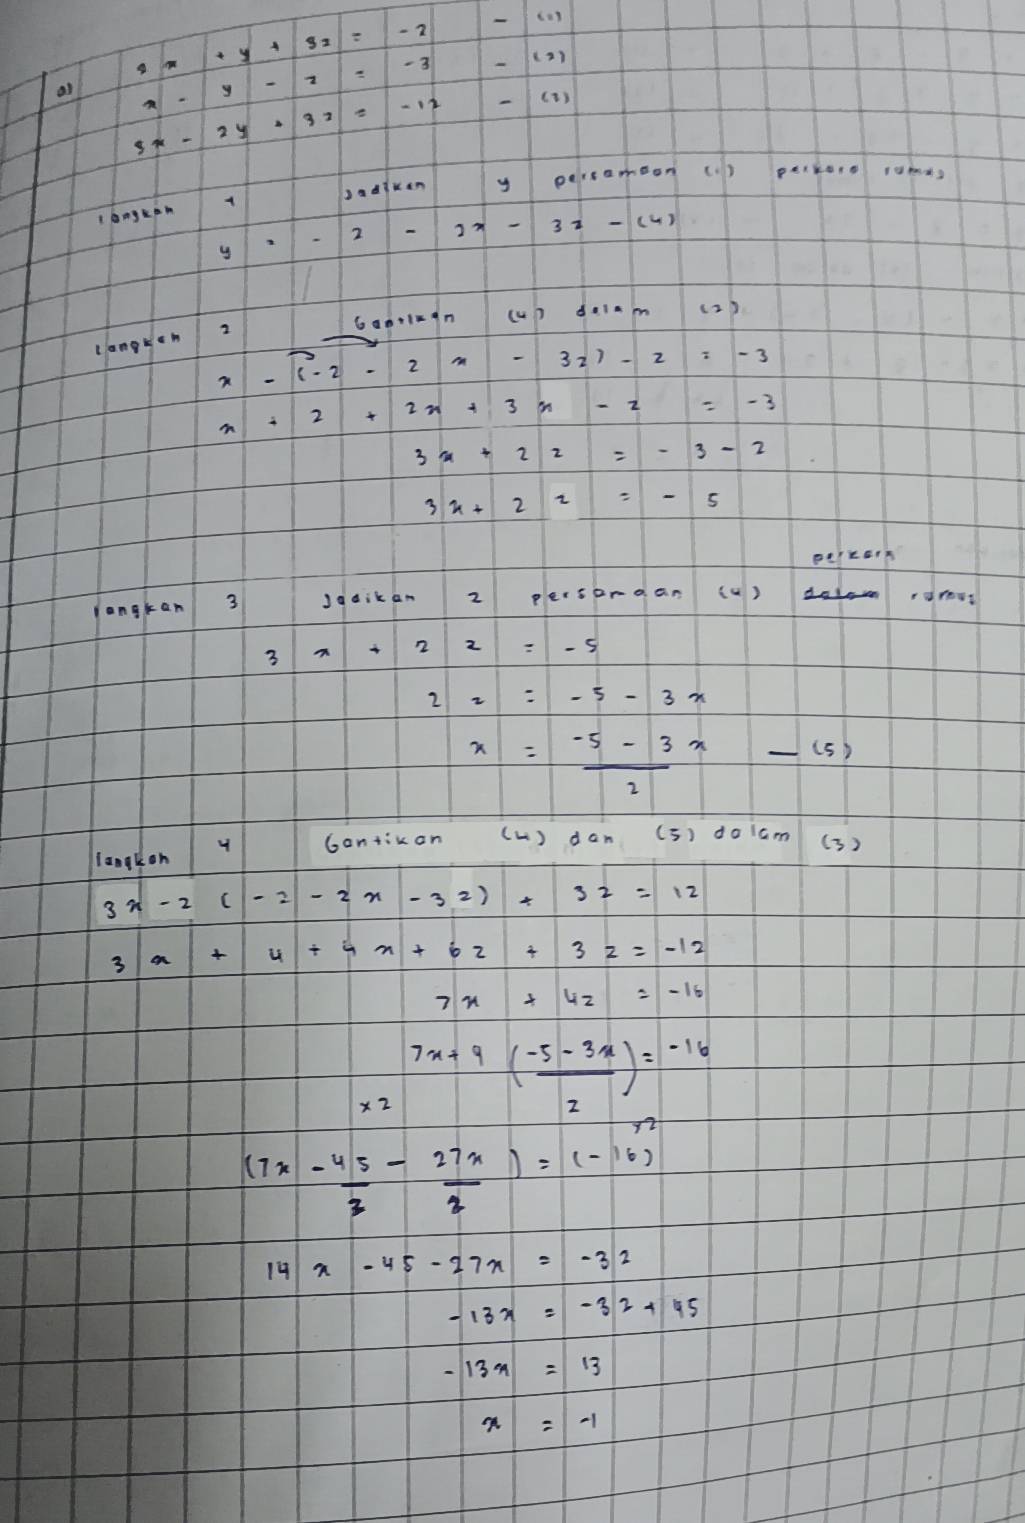 a) 2x + y + 3z = -2 - (1)
x - y - z = -3 - (2)
3x - 2y + 3z = -12 - (3)
langkah 1 Jadikan y persamaan (1) perkara rumus
y = - 2 - 2x - 3z - (4)
langkah 2 Gantikan (4) dalam (2)
x - (-2 - 2x - 3z) - z = -3
x + 2 + 2x + 3x - z = -3
3x + 2z = -3 - 2
3x + 2z = -5
perkara
langkah 3 Jadikan z persamaan (4) dalam rumus
3x + 2z = -5
2z = -5 - 3x
x = \frac{-5 - 3x}{2} — (5)
langkah 4 Gantikan (4) dan (5) dalam (3)
3x - 2 (-2 - 2x - 3z) + 3z = 12
3x + 4 + 4x + 6z + 3z = -12
7x + 4z = -16
7x + 9 \left(\frac{-5 - 3x}{2}\right) = -16
×2 ×2
(7x - \frac{45}{2} - \frac{27x}{2}) = (-16)
14x - 45 - 27x = -32
-13x = -32 + 45
-13x = 13
x = -1